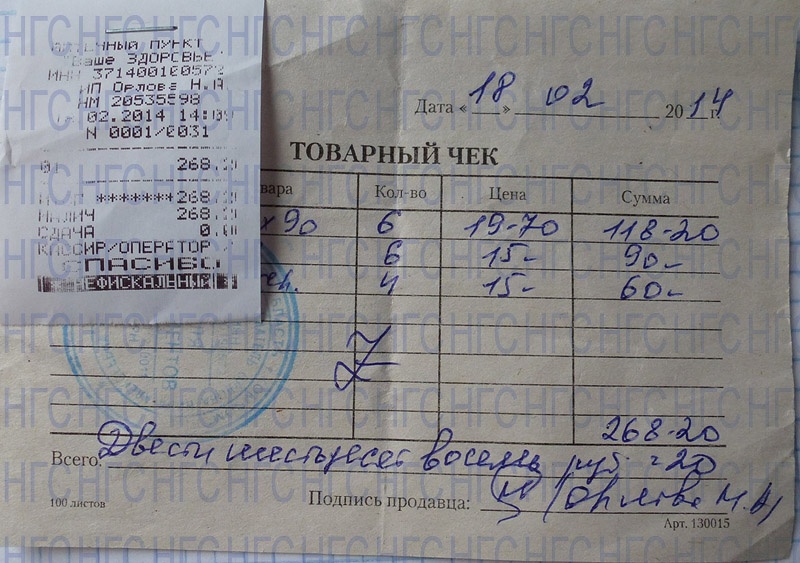 ПУНКТ
Ваше ЗДОРОВЬЕ
ИНН 371400100572
ИП Орлова Н.А
НМ 20535598
02.2014 14:09
N 0001/0031
268.20
*******268.20
НАЛИЧ 268.20
СДАЧА 0.00
КАССИР/ОПЕРАТОР
СПАСИБО
НЕФИСКАЛЬНЫЙ
Дата «18» 02 2014 г.
ТОВАРНЫЙ ЧЕК
вара Кол-во Цена Сумма
х90 6 19-70 118-20
6 15- 90-
4 15- 60-
268-20
Всего: Двести шестьдесят восемь руб. 20
100 листов
Подпись продавца: Орлова Н.А
Арт. 130015